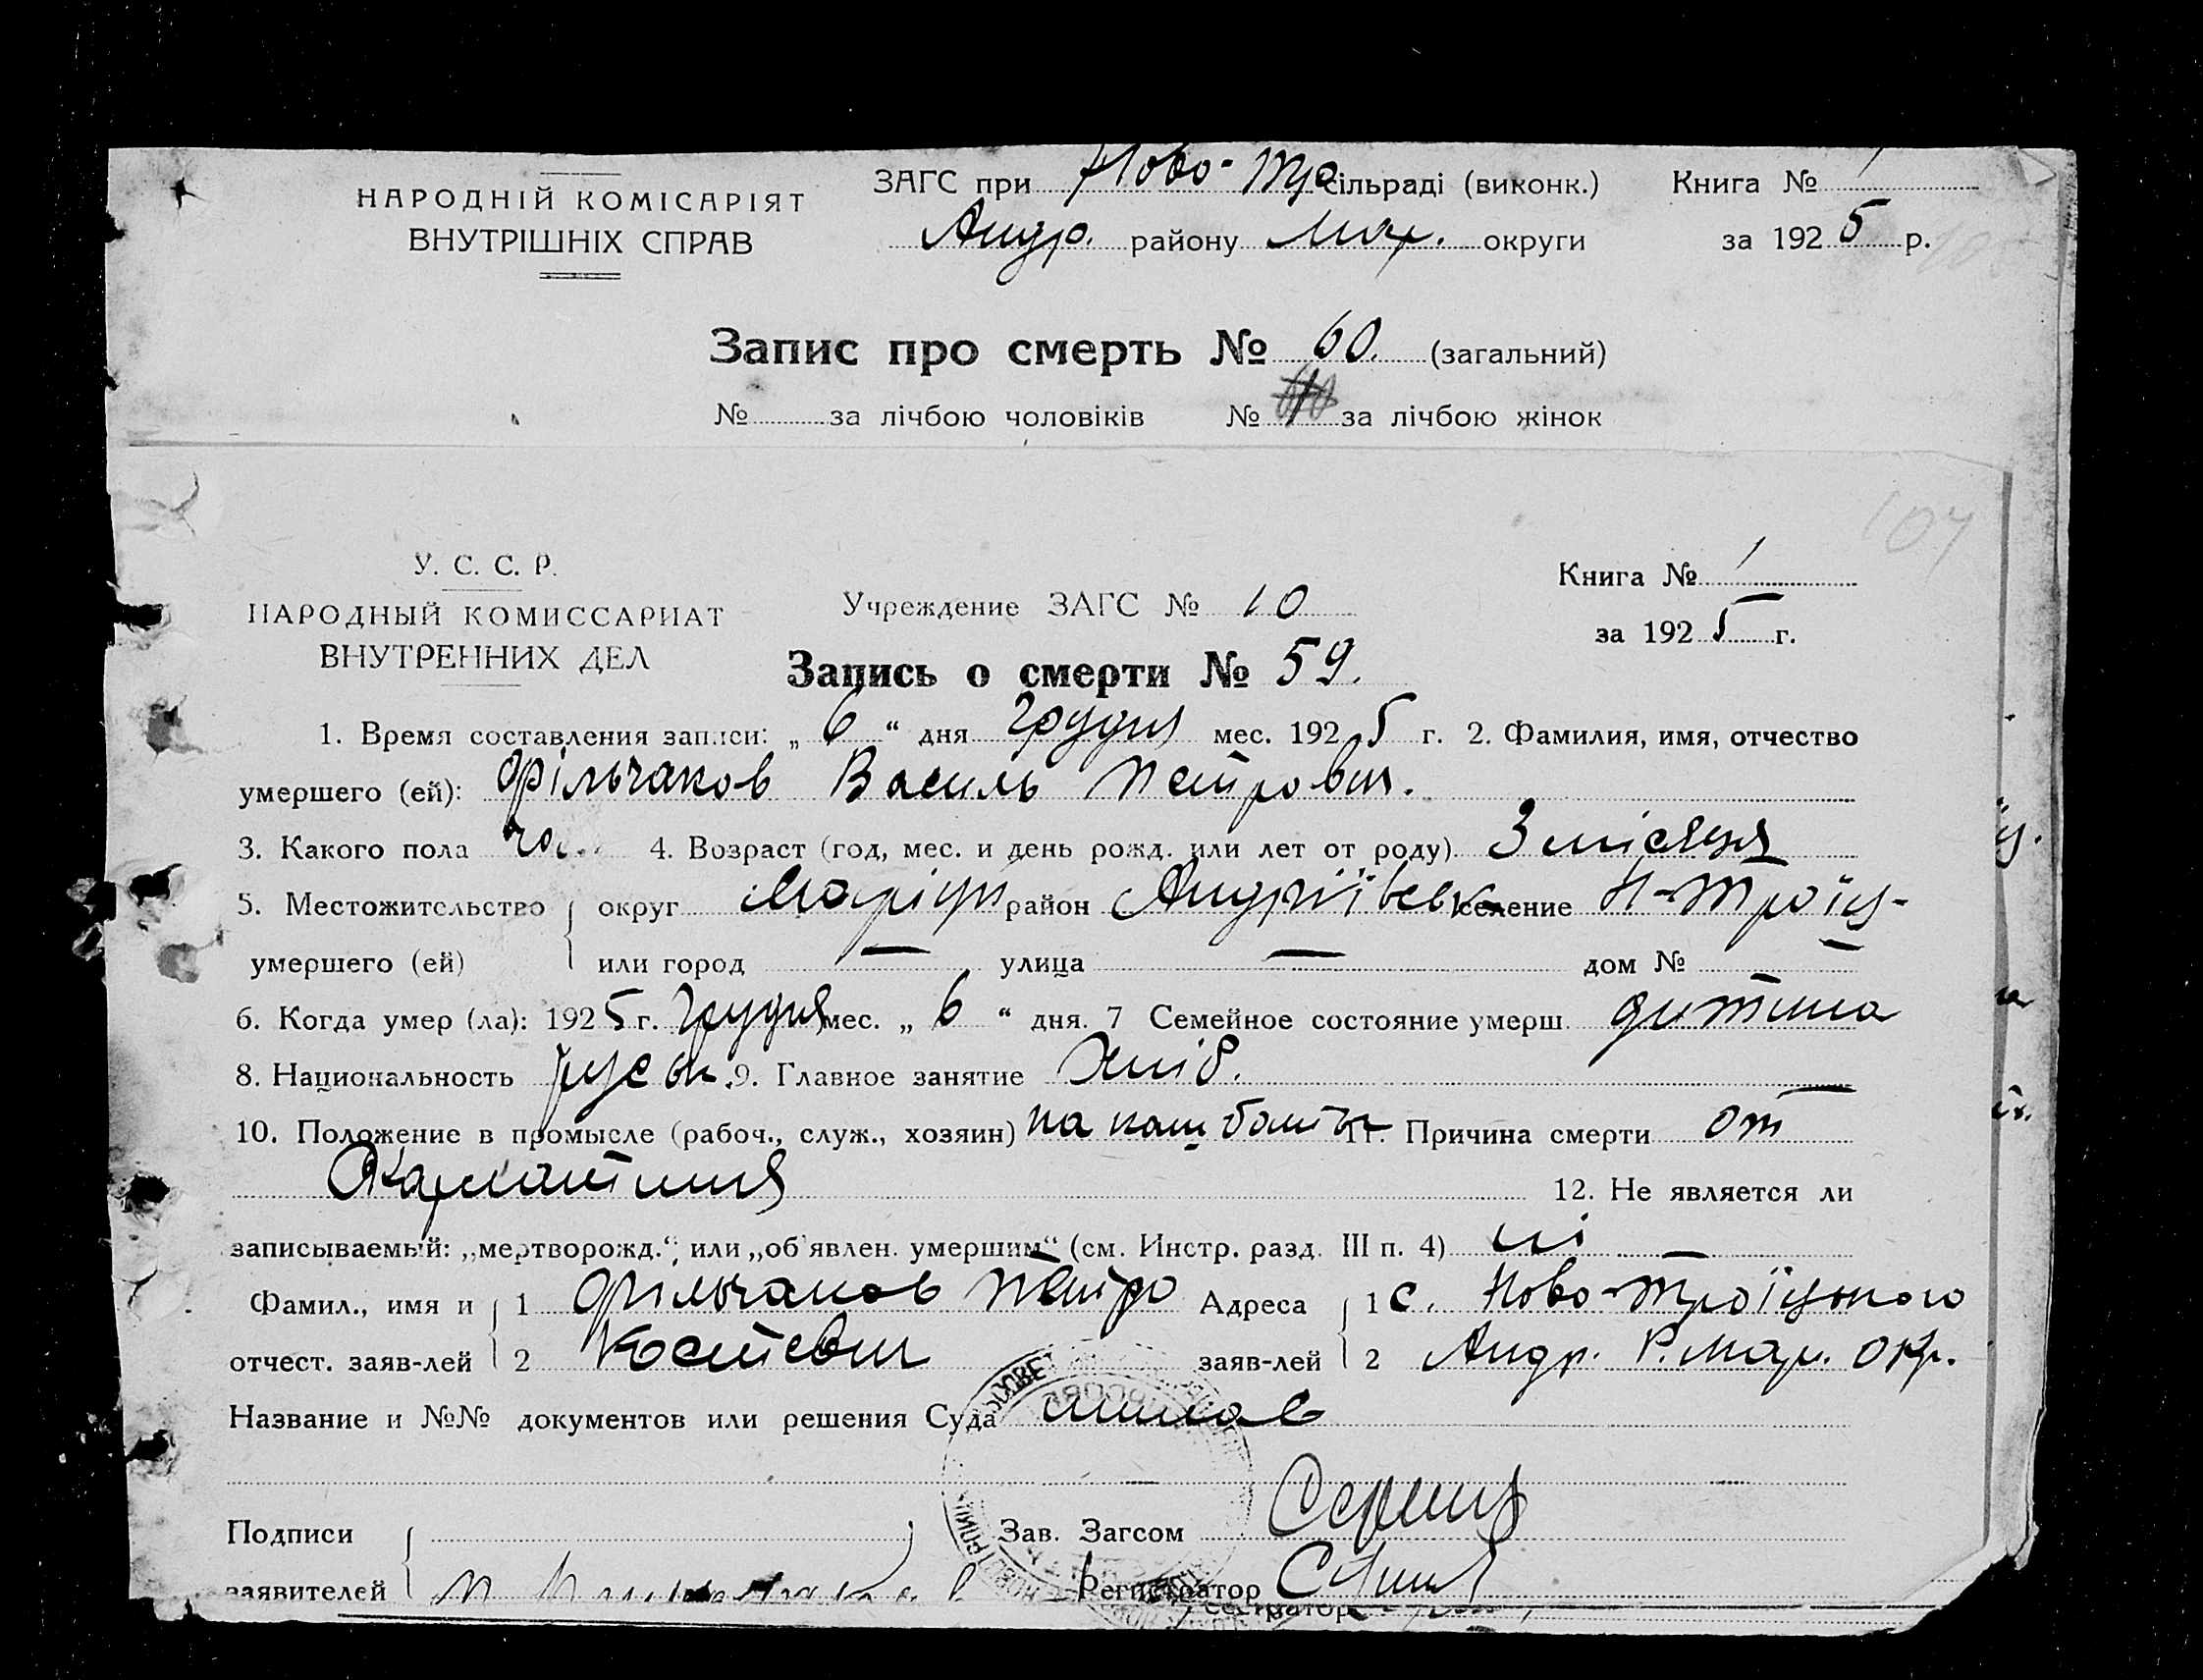 НАРОДНІЙ КОМІСАРІЯТ
ВНУТРІШНІХ СПРАВ
ЗАГС при Ново-Тро сільраді (виконк.) Книга № 1
Андр. району Мар. округи за 1925 р.
Запис про смерть № 60. (загальний)
№ за лічбою чоловіків № за лічбою жінок
104
У. С. С. Р.
НАРОДНЫЙ КОМИССАРИАТ
ВНУТРЕННИХ ДЕЛ
Учреждение ЗАГС № 10
Книга № 1
за 1925 г.
Запись о смерти № 59.
1. Время составления записи: „6“ дня Грудня мес. 1925 г. 2. Фамилия, имя, отчество
умершего (ей): Фільчаков Василь Петрович.
3. Какого пола чол. 4. Возраст (год, мес. и день рожд. или лет от роду) 3 місяця
5. Местожительство округ Маріуп район Андріївськ селение Н-Троїц-
умершего (ей) или город — улица — дом № —
6. Когда умер (ла): 1925 г. Грудня мес. „6“ дня. 7 Семейное состояние умерш. дитина
8. Национальность руськ. 9. Главное занятие Хліб.
10. Положение в промысле (рабоч., служ., хозяин) на 11. Причина смерти от
Скарлатини 12. Не является ли
записываемый: „мертворожд.“, или „об'явлен. умершим“ (см. Инстр. разд. III п. 4) ні —
Фамил., имя и 1 Фільчаков Петро Адреса 1 с. Ново-Троїцького
отчест. заяв-лей 2 Костевич заяв-лей 2 Андр. Р. Мар. окр.
Название и №№ документов или решения Суда
Подписи Зав. Загсом
заявителей Регистратор